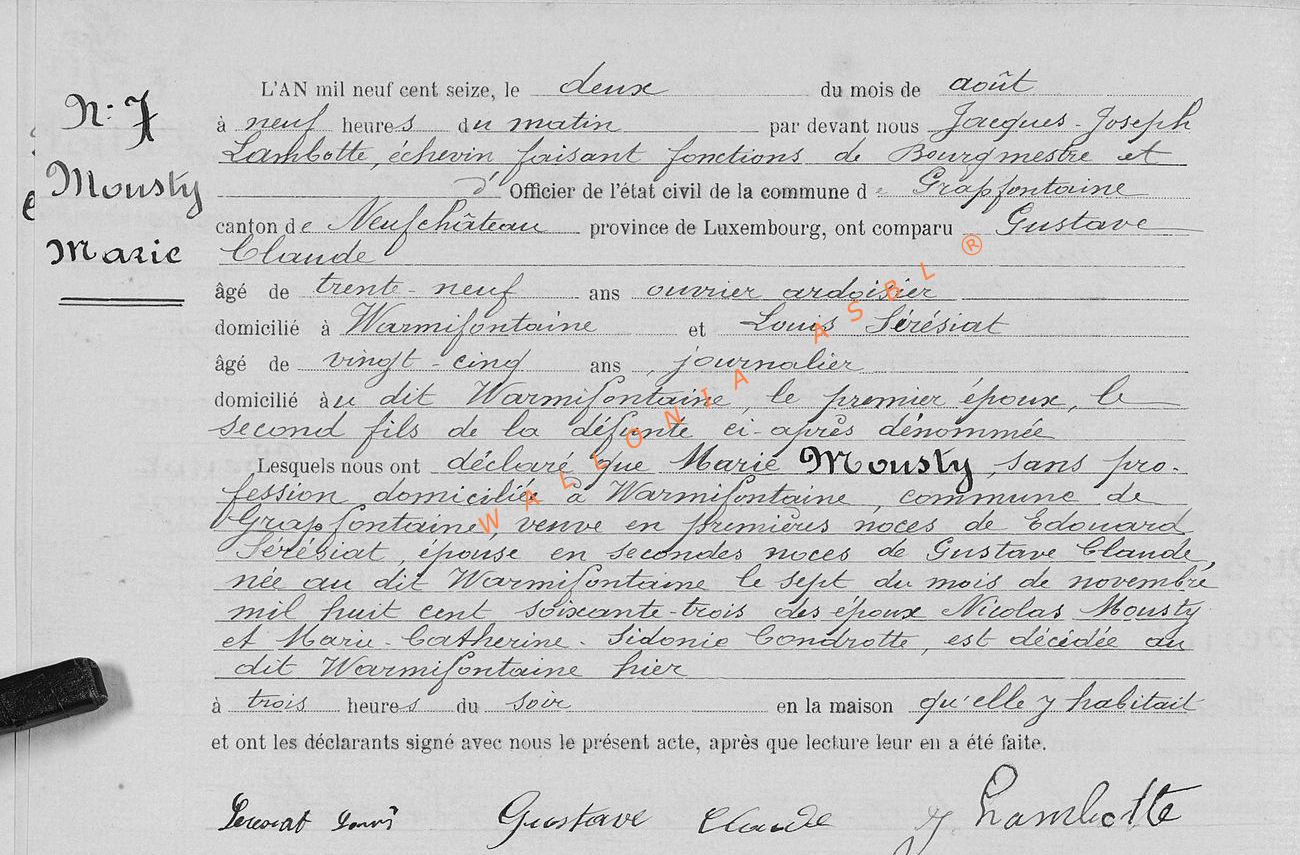 L'AN mil neuf cent seize, le deux du mois de août
N: 7
à neuf heures du matin par devant nous Jacques-Joseph
Lambotte, échevin faisant fonctions de Bourgmestre et
Mousty
d' Officier de l'état civil de la commune de Grapfontaine
canton de Neufchâteau province de Luxembourg, ont comparu Gustave
Marie
Claude
âgé de trente-neuf ans ouvrier ardoisier
domicilié à Warmifontaine et Louis Sérésiat
âgé de vingt-cinq ans, journalier
domicilié au dit Warmifontaine, le premier époux, le
second fils de la défunte ci-après dénommée
Lesquels nous ont déclaré que Marie Mousty, sans pro-
fession domiciliée à Warmifontaine, commune de
Grapfontaine, veuve en premières noces de Edouard
Sérésiat, épouse en secondes noces de Gustave Claude,
née au dit Warmifontaine le sept du mois de novembre
mil huit cent soixante-trois des époux Nicolas Mousty
et Marie-Catherine-Sidonie Condrotte, est décédée au
dit Warmifontaine hier
à trois heures du soir en la maison qu'elle y habitait
et ont les déclarants signé avec nous le présent acte, après que lecture leur en a été faite.
Sérésiat Louis Gustave Claude J Lambotte
WALLONIA ASBL ®